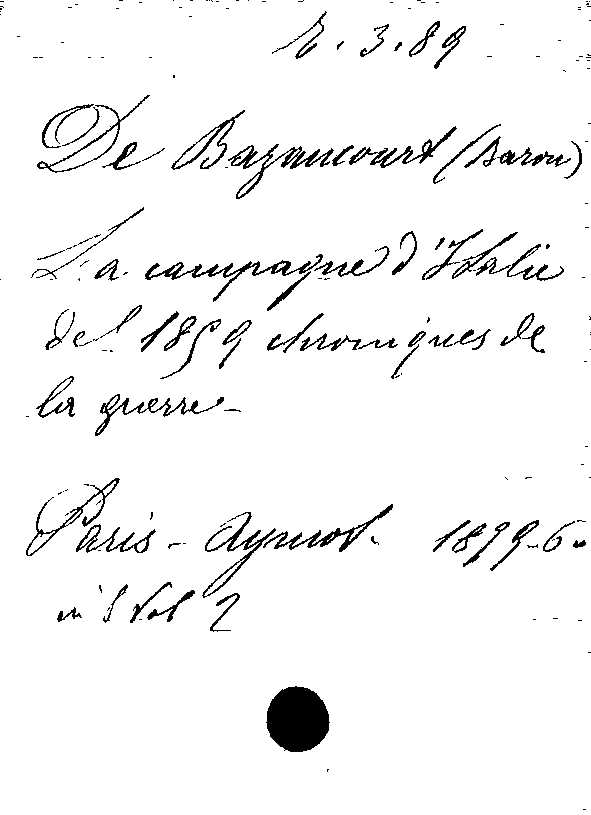 3.89
De Bazancourt (Baron)
La campagne d'Italie
del 1859 chroniques de
la guerre -
Paris - Aymot. 1859-60
in 8 Vol 2